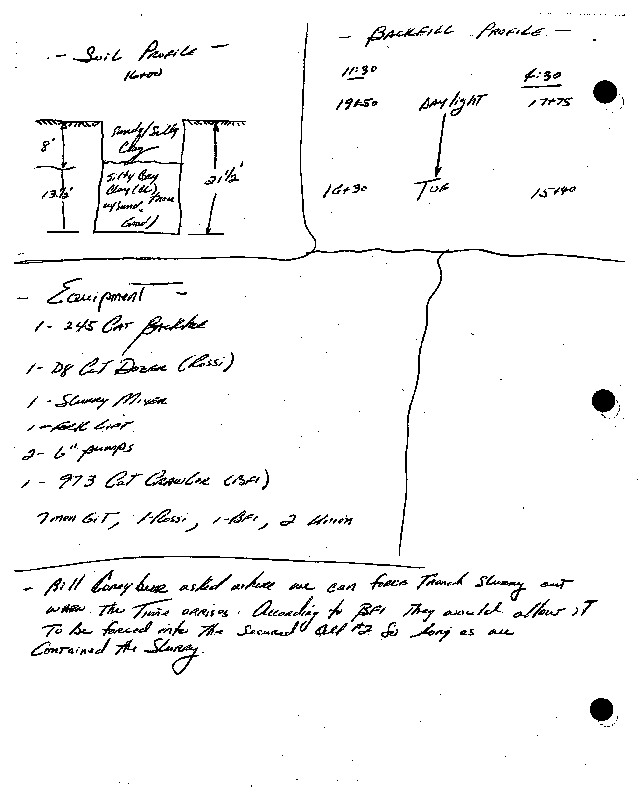 - Soil Profile -
16+00
8'
Sandy/Silty
Clay
13 1/2'
Silty Gray
Clay (CL)
w/Sand, Trace
Gravel
21 1/2'
- Backfill Profile -
11:30 4:30
19+50 Daylight 17+75
16+30 Toe 15+40
- Equipment -
1- 245 Cat Backhoe
1- D8 Cat Dozer (Rossi)
1- Slurry Mixer
1- Fork Lift
2- 6" pumps
1- 973 Cat Crawler (BFI)
7 man GIT, 1-Rossi, 1-BFI, 2 Union
- Bill asked where we can force Trench Slurry out
when The Time arrises. According to BFI They would allow it
To be forced into The Secured Cell #2 So long as we
Contained The Slurry.